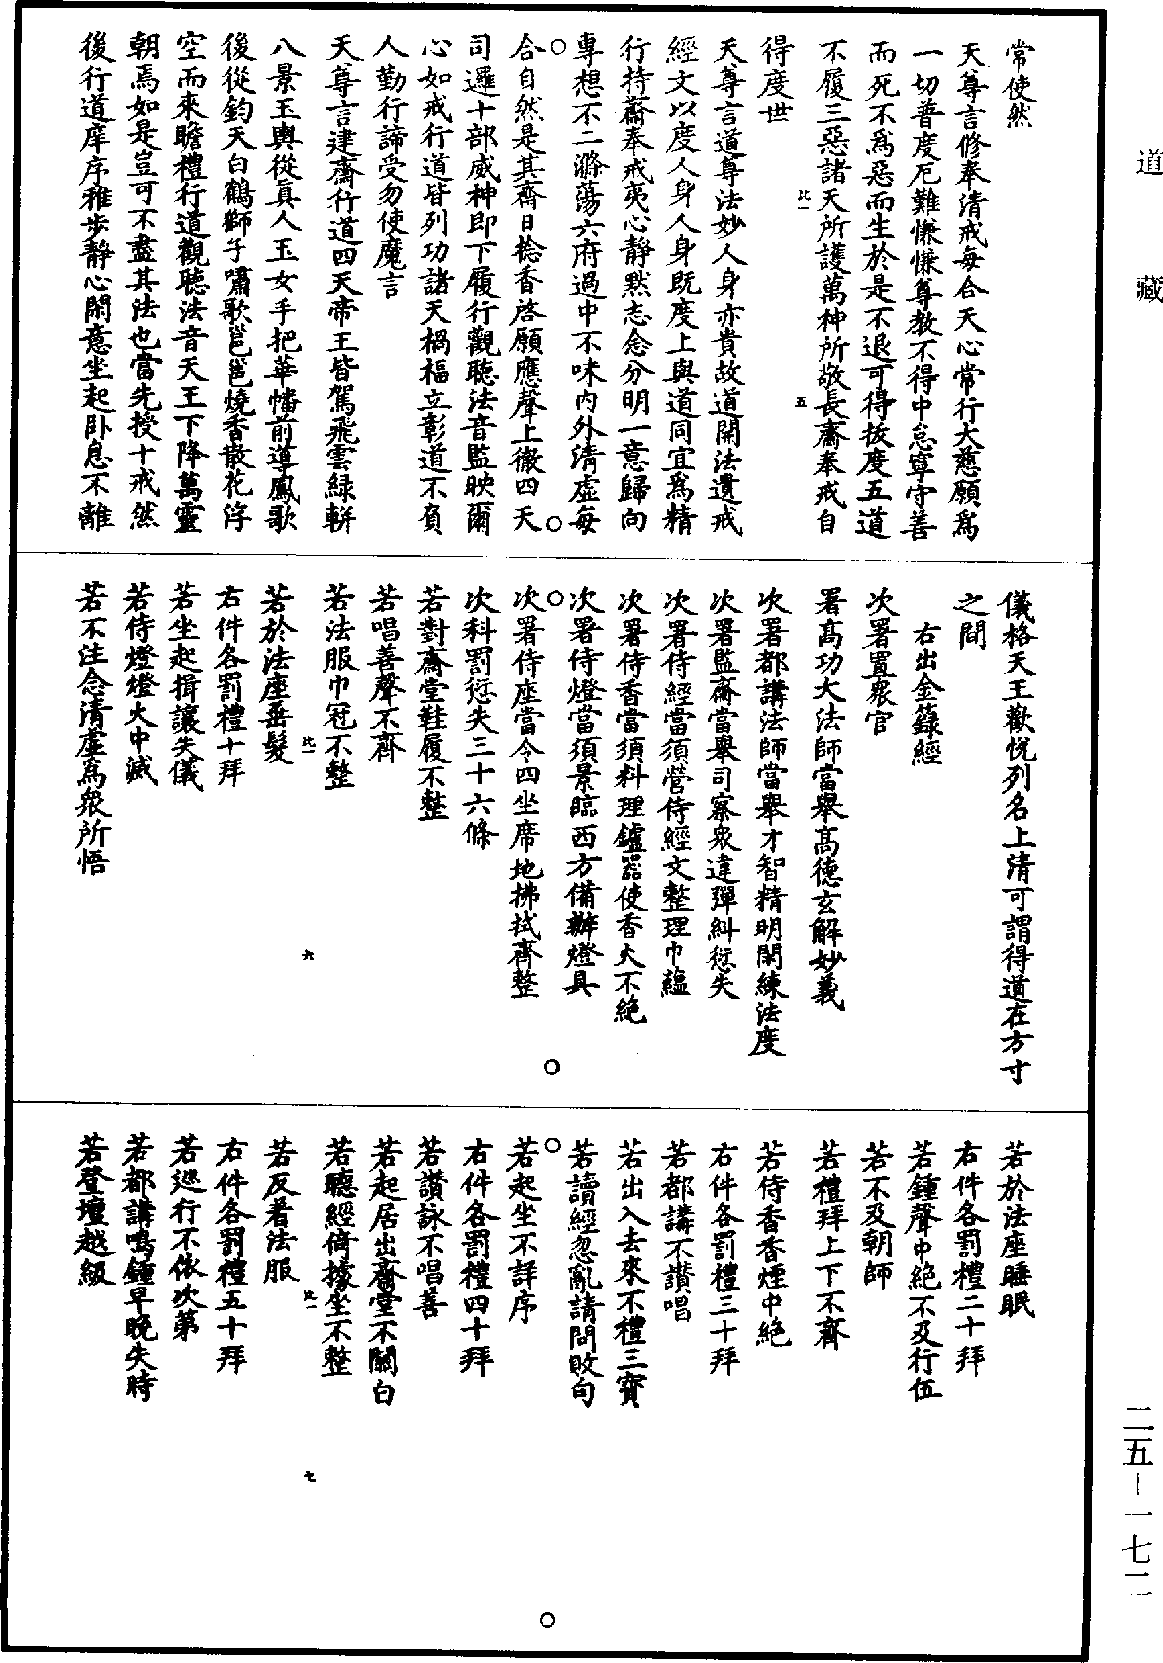 道藏
常使然
天尊言修奉清戒每合天心常行大慈願爲
一切普度厄難慊慊尊教不得中怠寧守善
而死不爲惡而生於是不退可得拔度五道
不履三惡諸天所護萬神所敬長齋奉戒自
得度世
天尊言道尊法妙人身亦貴故道開法遺戒
經文以度人身人身既度上與道同宜爲精
行持齋奉戒夷心靜默志念分明一意歸向
專想不二滌蕩六府過中不味內外清虛每
合自然是其齊日捻香啓願應聲上徹四天
司邏十部威神即下履行觀聽法音監映爾
心如戒行道皆列功諸天禍福立彰道不負
人勤行諦受勿使魔言
天尊言建齋行道四天帝王皆駕飛雲綠軿
八景玉輿從真人玉女手把華幡前導鳳歌
後從鈞天白鶴獅子嘯歌邕邕燒香散花浮
空而來瞻禮行道觀聽法音天王下降萬靈
朝焉如是豈可不盡其法也當先授十戒然
後行道庠序雅步靜心閑意坐起臥息不離
儀格天王歡悅列名上清可謂得道在方寸
之間
右出金籙經
次署置眾官
署高功大法師當舉高德玄解妙義
次署都講法師當舉才智精明閑練法度
次署監齋當舉司察眾違彈糾愆失
次署侍經當須營侍經文整理巾蘊
次署侍香當須料理鑪器使香火不絕
次署侍燈當須景臨西方備辦燈具
次署侍座當令四坐席地拂拭齊整
次科罰愆失三十六條
若對齋堂鞋履不整
若唱善聲不齊
若法服巾冠不整
若於法座垂髮
右件各罰禮十拜
若坐起揖讓失儀
若侍燈燈火中滅
若不注念清虛爲眾所悟
若於法座睡眠
右件各罰禮二十拜
若鍾聲中絕不及行伍
若不及朝師
若禮拜上下不齊
若侍香香煙中絕
右件各罰禮三十拜
若都講不讚唱
若出入去來不禮三寶
若讀經忽亂請問敗句
若起坐不詳序
右件各罰禮四十拜
若讚詠不唱善
若起居出齋堂不關白
若聽經倚據坐不整
若反著法服
右件各罰禮五十拜
若巡行不依次第
若都講鳴鍾早晚失時
若登壇越級
二五－一七二